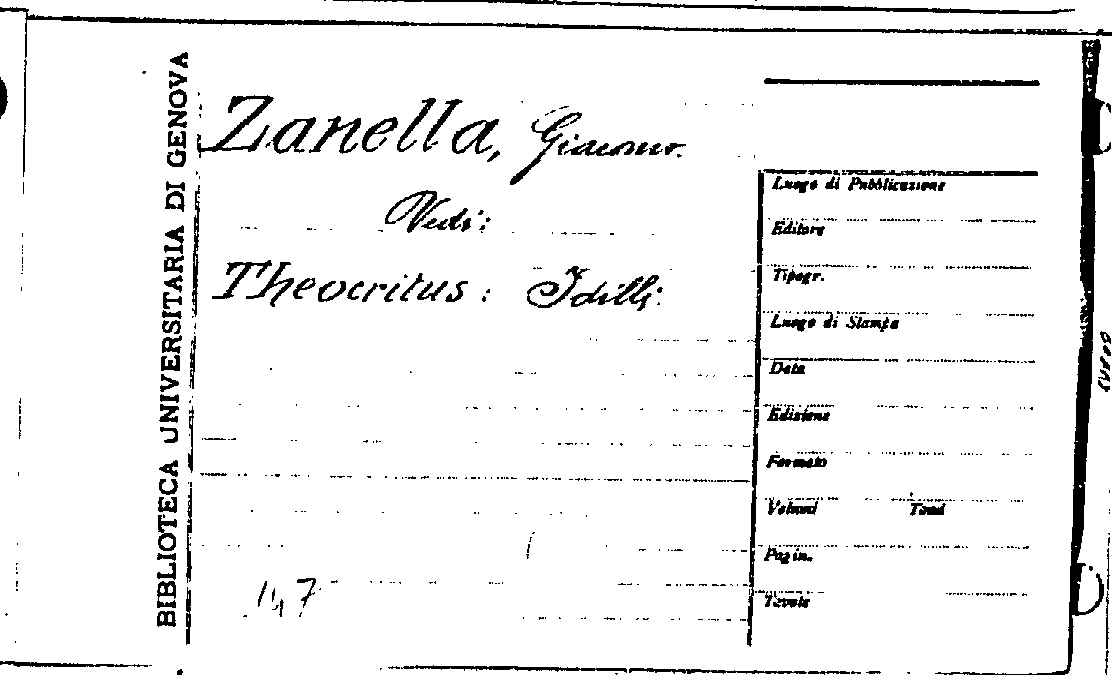 BIBLIOTECA UNIVERSITARIA DI GENOVA
Zanella, Giacomo.
Vedi:
Theocritus: Idilli.
147
Luogo di Pubblicazione
Editore
Tipogr.
Luogo di Stampa
Data
Edizione
Formato
Volumi Tomi
Pagin.
Tavole